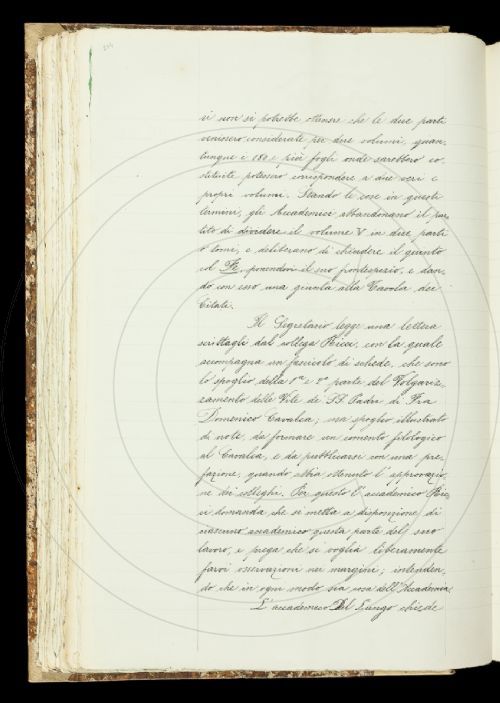 si non si potrebbe ottenere che le due parti
venissero considerate per due volumi, quan-
tunque i 180 e più fogli onde sarebbero co-
stituite potessero corrispondere a due veri e
propri volumi. Stando le cose in questi
termini, gli Accademici abbandonano il par-
tito di dividere il volume V in due parti
o tomi, e deliberano di chiudere il quinto
col Fe, ponendovi il suo frontespizio, e dan-
do con esso una giunta alla Tavola dei
Citati.
Il Segretario legge una lettera
scrittagli dal collega Rica, con la quale
accompagna un fascicolo di schede, che sono
lo spoglio della 1ª e 2ª parte del Volgariz-
zamento delle Vite de' SS. Padri di Fra
Domenico Cavalca; uno spoglio illustrato
di note, da formare un comento filologico
al Cavalca, e da pubblicarsi con una pre-
fazione, quando abbia ottenuto l'approvazio-
ne dei colleghi. Per questo l'accademico
domanda che si metta a disposizione di
ciascuno accademico questa parte del suo
lavoro, e prega che si voglia liberamente
farvi osservazioni nei margini; intenden-
do che in ogni modo sia cosa dell'Accademia.
L'accademico Del Lungo chiede